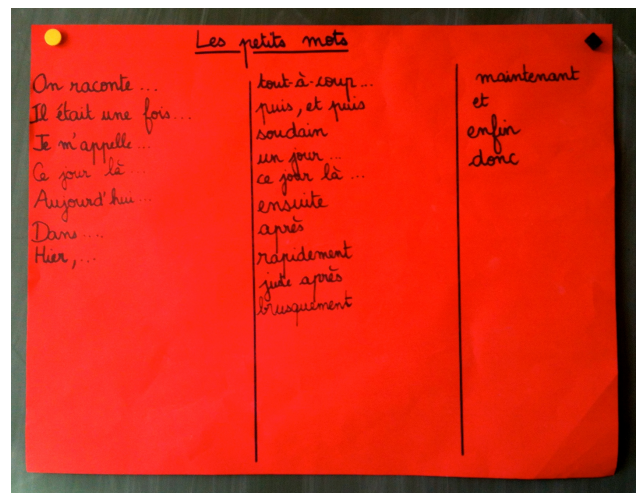 Les petits mots
On raconte ...
Il était une fois...
Je m'appelle...
Ce jour là ...
Aujourd'hui ...
Dans ....
Hier, ...
tout-à-coup ...
puis, et puis
soudain
un jour ...
ce jour là ...
ensuite
après
rapidement
juste après
brusquement
maintenant
et
enfin
donc